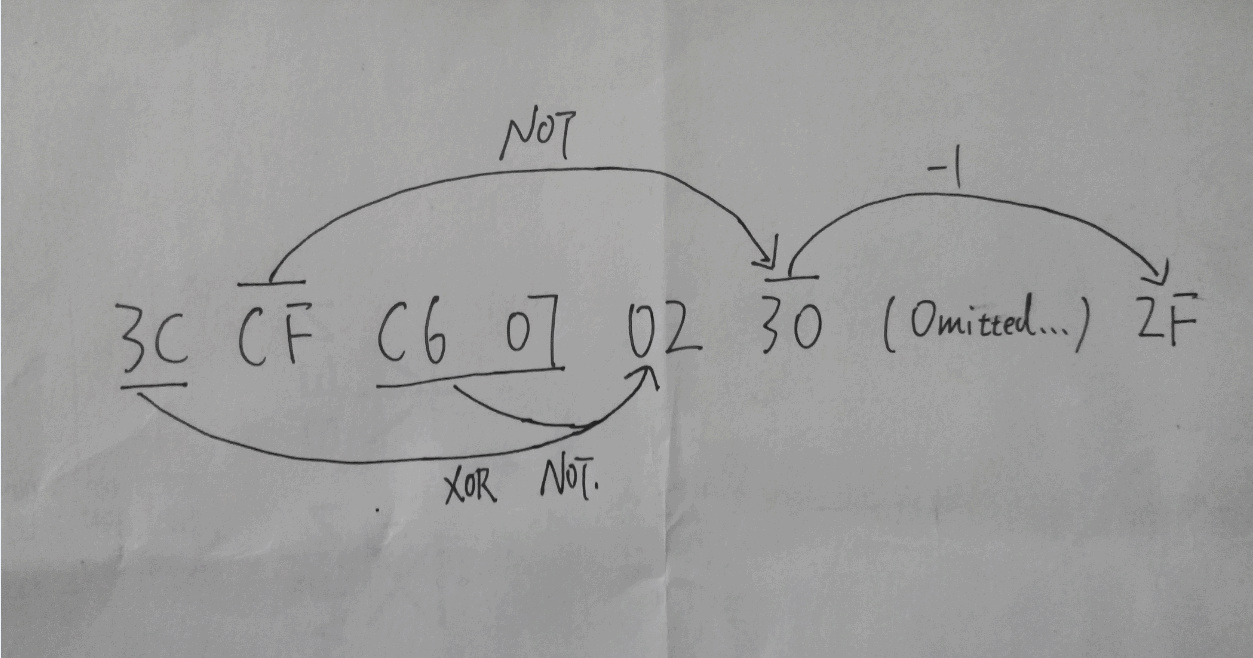 NOT
-1
3C CF C6 07 02 30 (Omitted...) 2F
XOR NOT.